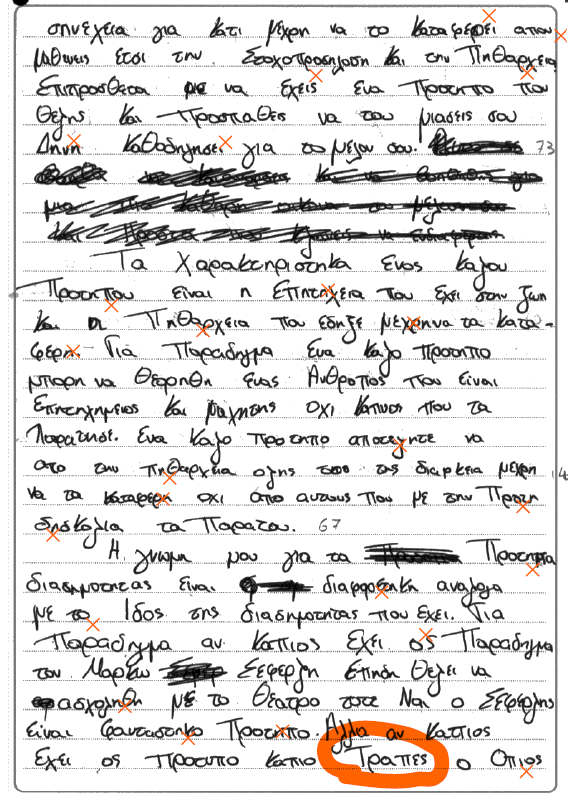 σηνεχεια για κατι μεχρη να το καταφερει απου
μαθωεις ετσι την Στοχοπροσηλωση και την Πηθαρχεια
Επιπροσθετα με να εχεις ενα Προτηπο που
Θελης και Προσπαθες να του μιασεις σου
Δηνη καθοδηγησει για το μελον σου. 73
Τα Χαρακτηριστηκα ενος καλου
Προτηπου ειναι η Επητηχεια που εχει στην ζωη
και οι Πηθαρχεια που εδηξε μεχρηνα τα κατα-
φερη. Για Παραδηγμα Ενα καλο προτηπο
μπορη να Θεορηθη ενας Ανθροπος που ειναι
Επητηχημενος και μαχητης οχι καπιος που τα
Παρατησε. Ενα καλο προτηπο αποτεληται να
απο την πηθαρχεια ολης της διαρκεια μεχρη 14
να τα καταφερη οχι απο αυτους που με την Πρωτη
δησκολια τα Παρατου. 67
Η γνωμη μου για τα Προτηπα
διασημοτητας ειναι διαφορετικη αναλογα
με το Ιδος της διασημοτητας που εχει. Για
Παραδηγμα αν καπιος Εχει ος Παραδηγμα
τον Μαρκο Σεφερλη Επιδη Θελει να
ασχοληθη με το Θεατρο τοτε Ναι ο Σεφερλης
ειναι φανταστηκο Προτηπο. Αλλα αν καπιος
Εχει ος προτυπο καπιο Τραπες ο Οπιος